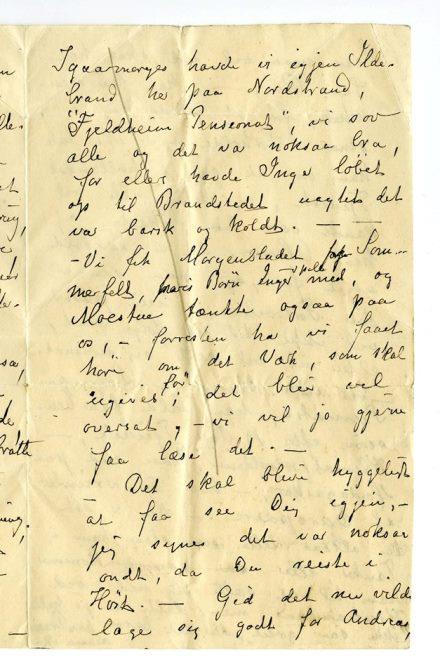 Igaarmorges havde vi igjen Ilde-
brand her paa Nordstrand,
"Fjeldheim Pensonat", vi sov
alle og det va noksaa bra,
for ellers havde Inge løbet
op til Brandstedet uagtet det
var barsk og koldt. — —
- Vi fik Morgenbladet fra Som-
merfelt, Børn Inge med, og
Moestue tænkte ogsaa paa
os, - forresten ha vi faaet
høre om det Værk, som skal
ugives, før det blev vel
oversat, - vi vil jo gjerne
faa læse det. —
Det skal blive hyggeligt
at faa see Dig igjen, -
jeg synes det var noksaa
ondt, da Du reiste i
Høst. — Gid det nu vilde
lage sig godt for Andreas,